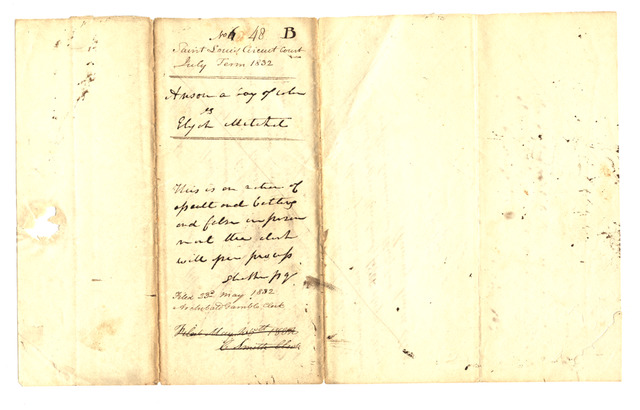 No 48 B
Saint Louis Circuit Court
July Term 1832
Anson a boy of color
vs
Elijah Mitchel
This is an action of
assault and battery
and false imprison
ment the clerk
will
Filed 23d May 1832
Archibald Gamble Clerk
Filed May
C Smith Clerk